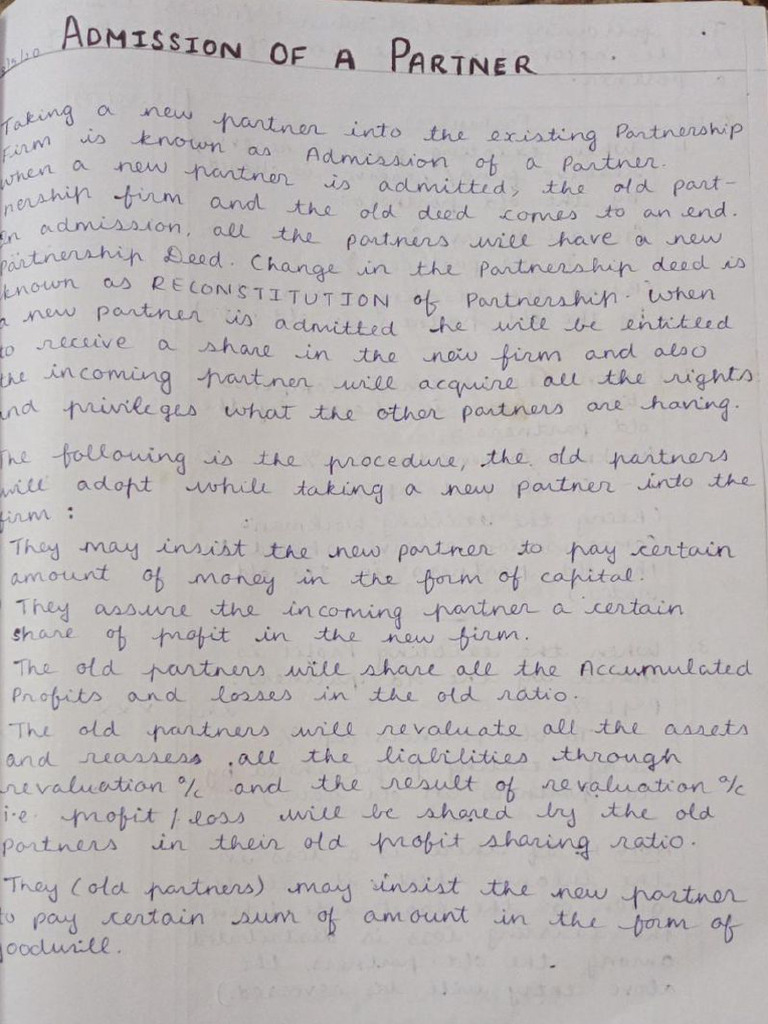 ADMISSION OF A PARTNER
Taking a new partner into the existing Partnership
Firm is known as Admission of a Partner.
when a new partner is admitted, the old part-
nership firm and the old deed comes to an end.
In admission, all the partners will have a new
Partnership Deed. Change in the Partnership deed is
known as RECONSTITUTION of Partnership. When
a new partner is admitted he will be entitled
to receive a share in the new firm and also
the incoming partner will acquire all the rights
and privileges what the other partners are having.
The following is the procedure, the old partners
will adopt while taking a new partner into the
firm :
They may insist the new partner to pay certain
amount of money in the form of capital.
They assure the incoming partner a certain
share of profit in the new firm.
The old partners will share all the Accumulated
Profits and losses in the old ratio.
The old partners will revaluate all the assets
and reassess all the liabilities through
revaluation a/c and the result of revaluation a/c
i.e. profit / loss will be shared by the old
partners in their old profit sharing ratio.
They (old partners) may insist the new partner
to pay certain sum of amount in the form of
oodwill.